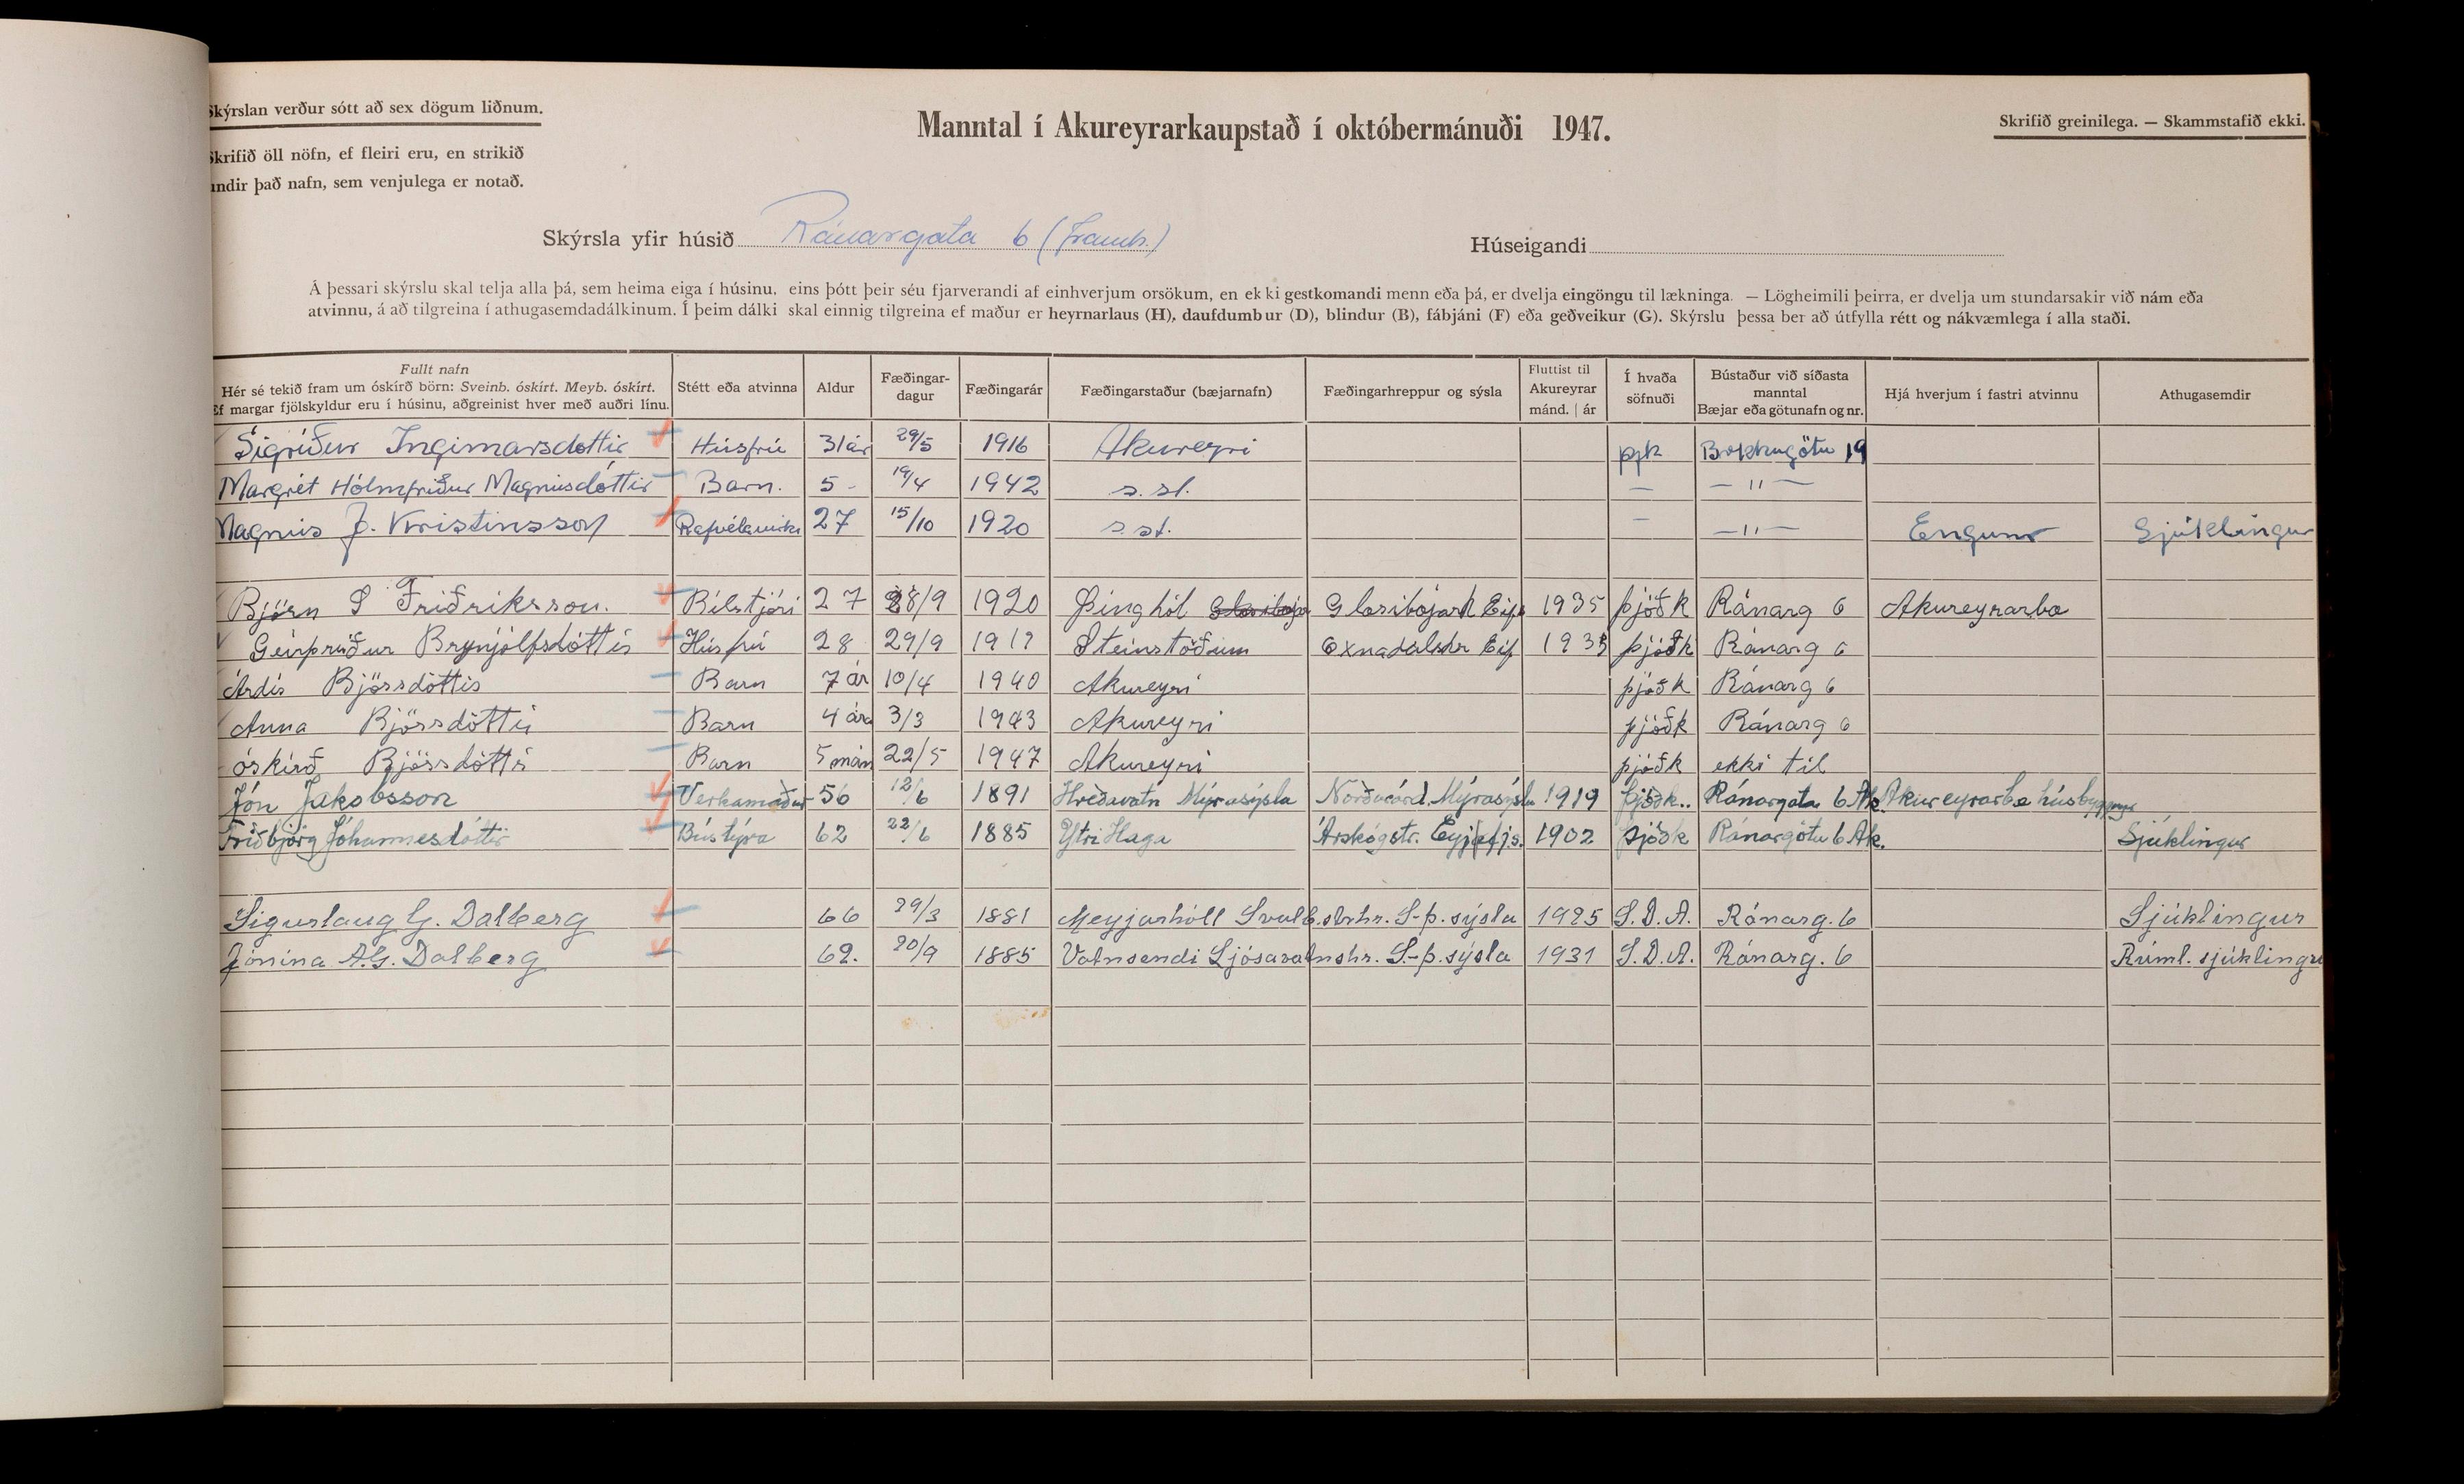 Skýrslan verður sótt að sex dögum liðnum.
Skrifið öll nöfn, ef fleiri eru, en strikið
undir það nafn, sem venjulega er notað.
Manntal í Akureyrarkaupstað í októbermánuði 1947.
Skrifið greinilega. — Skammstafið ekki.
Skýrsla yfir húsið Ránargata 6 (framh.)
Húseigandi
Á þessari skýrslu skal telja alla þá, sem heima eiga í húsinu, eins þótt þeir séu fjarverandi af einhverjum orsökum, en ekki gestkomandi menn eða þá, er dvelja eingöngu til lækninga. — Lögheimili þeirra, er dvelja um stundarsakir við nám eða
atvinnu, á að tilgreina í athugasemdadálkinum. Í þeim dálki skal einnig tilgreina ef maður er heyrnarlaus (H), daufdumbur (D), blindur (B), fábjáni (F) eða geðveikur (G). Skýrslu þessa ber að útfylla rétt og nákvæmlega í alla staði.
Fullt nafn
Hér sé tekið fram um óskírð börn: Sveinb. óskírt. Meyb. óskírt.
Ef margar fjölskyldur eru í húsinu, aðgreinist hver með auðri línu.
Stétt eða atvinna
Aldur
Fæðingar-
dagur
Fæðingarár
Fæðingarstaður (bæjarnafn)
Fæðingarhreppur og sýsla
Fluttist til
Akureyrar
mánd. | ár
Í hvaða
söfnuði
Bústaður við síðasta
manntal
Bæjar eða götunafn og nr.
Hjá hverjum í fastri atvinnu
Athugasemdir
Sigríður Ingimarsdóttir Húsfrú 31 ár 29/5 1916 Akureyri þjk 19
Margrét Hólmfríður Magnúsdóttir Barn. 5 - 19/4 1942 s.st. — — " —
Magnús J. Kristinsson Rafvélavirki 27 15/10 1920 s.st. — — " — Engum Sjúklingur
Björn S Friðriksson. Bílstjóri 27 28/9 1920 Þinghól Glæsibæjarh Eif 1935 þjóðk Ránarg 6 Akureyrarbæ
Geirþrúður Brynjólfsdóttir Húsfrú 28 29/9 Steinstöðum Öxnadalshr Eif þjóðk Ránarg 6
Árdís Björsdóttir Barn 7 ár 10/4 1940 Akureyri þjóðk Ránarg 6
Anna Björsdóttir Barn 4 ára 3/3 1943 Akureyri þjóðk Ránarg 6
óskírð Björsdóttir Barn 5 mán 22/5 1947 Akureyri þjóðk ekki til
Jón Jakobsson Verkamaður 56 12/6 1891 Hreðavatn Mýrasýsla Norðurárd. Mýrasýslu 1919 Þjóðk.. Ránargata 6 Ak. Akureyrarbæ
Friðbjörg Jóhannesdóttir Bústýra 62 22/6 1885 Ytri Haga Árskógstr. Eyjafj.s. 1902 Þjóðk Ránargötu 6 Ak. Sjúklingur
Sigurlaug G. Dalberg 66 29/3 1881 Meyjarhóll Svalb.strhr. S-þ. sýsla 1925 S.D.A. Ránarg. 6 Sjúklingur
Jónína A.G. Dalberg 62. 20/9 1885 Vatnsendi Ljósavatnshr. S-þ. sýsla 1931 S.D.A. Ránarg. 6 Rúml. sjúklingur